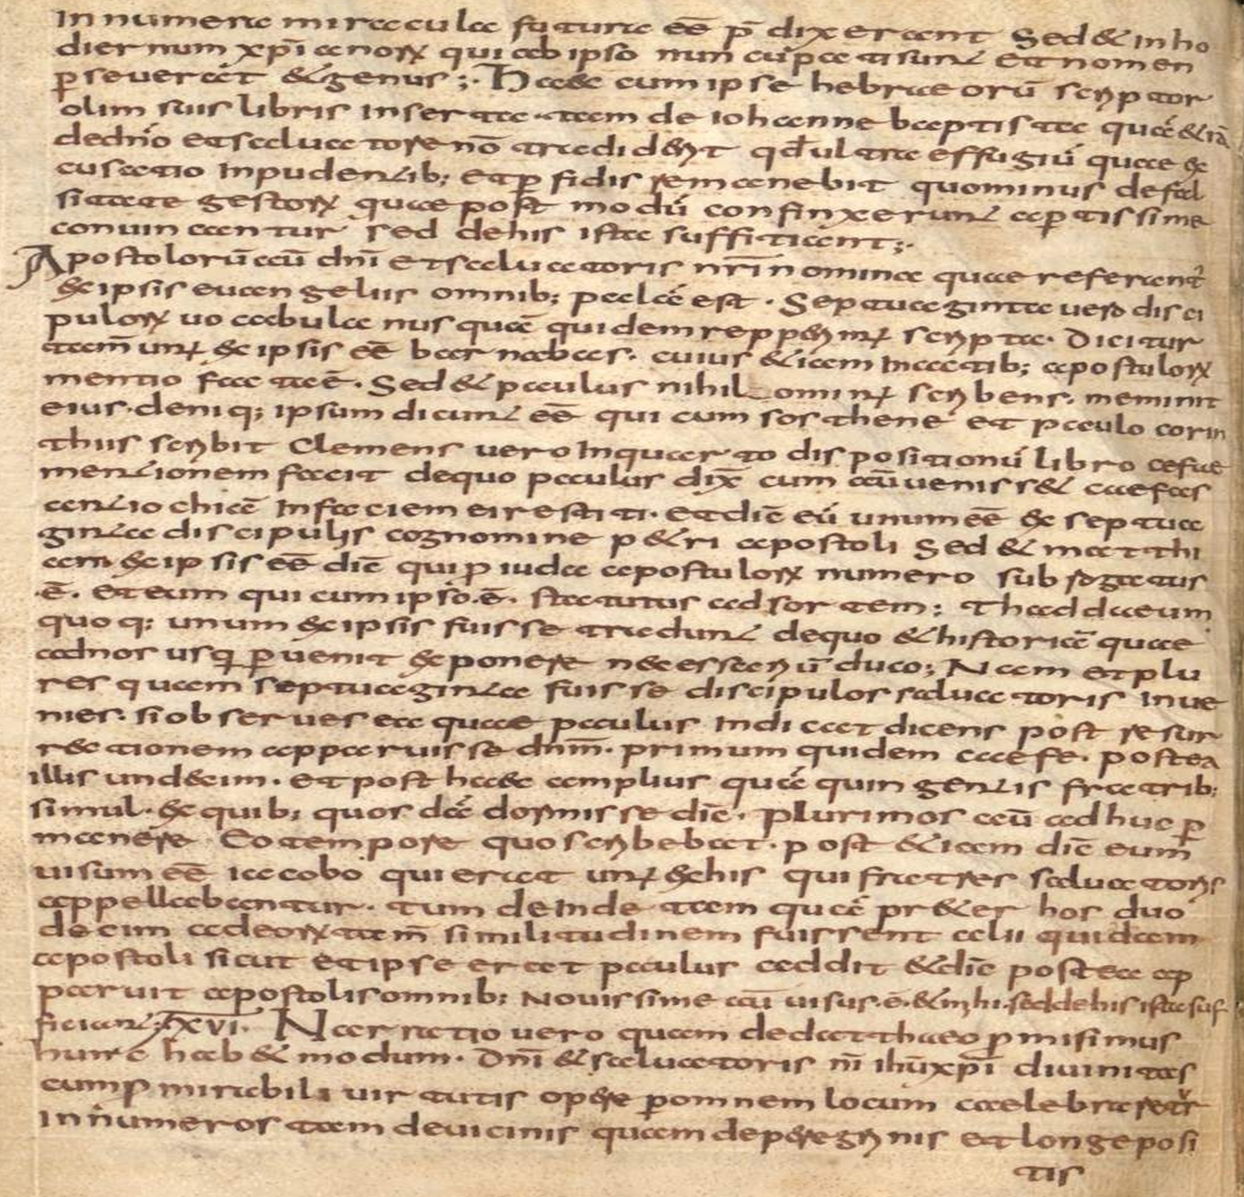 In numera miracula futura eē p̄ dixerant Sed & inho
diernum xp̄ianoꝝ qui ab ipso nuncupati sunt Et nomen
ꝑseverat & genus;· Haec cum ipse hebraeorū scriptor
olim suis libris inserta· tam de iohanne baptista quā &iā
de dn̄o et salvatore nō tradiderit qd̄ ultra effugiū quae ex
cusatio inpudentib; et ꝑfidis remanebit quominus defal
sitate gestoꝝ quae post modū confinxerunt aꝑtissime
convincantur sed dehis ista sufficiant;·
Apostolorū cū dn̄i et salvatoris nr̄i nomina quae referant
ex ipsis euangeliis omnib; palā est· Septuaginta vero disci
puloꝝ vocabula nusquā quidem repperimus scripta· Dicitur
tam̄ unus ex ipsis eē barnabas· cuius & iam in actib; apostoloꝝ
mentio facta ē· Sed & paulus nihilominus scribens· meminit
eius· deniq; ipsum dicunt eē qui cum sosthene et paulo corin
thiis scribit Clemens vero Inquarto dispositionū libro cefae
mentionem facit dequo paulus dix̄ cum aū venisset caefas
antiochiā Infaciem eirestiti· et dic̄ eū unum eē ex septua
ginta discipulis cognomine p&ri apostoli Sed & matthi
am ex ipsis eē dic̄ qui ꝓ iuda apostuloꝝ numero subrogatus
·ē· et eum qui cum ipso·ē· statutus ad sortem; Thaddaeum
quoq; unum ex ipsis fuisse tradunt dequo & historiā quae
adnos usq; ꝑvenit exponere necessariū duco; Nam et plu
res quam septuaginta fuisse discipulos salvatoris inve
nies· si observes ea quae paulus Indicat dicens post resur
rectionem apparuisse dnm̄· primum quidem caefe· postea
illis undecim· et post haec amplius quā quingentis fratrib;
simul· ex quib; quosdā dormisse dic̄· plurimos aū adhuc ꝑ
manere Eo tempore quo scribebat· post & iam dic̄ eum
visum eē iacobo qui erat unus exhis qui fratres salvatoris
appellabantur· tum deinde tam quā pr&er hos duo
decim adeoꝝ tam̄ similitudinem fuissent alii quidam
apostoli sicut et ipse erat paulus addit & dic̄ postea ap
paruit apostolis omnib; Novissime aū visus·ē·& mihi·sed dehis ista suf
ficiant; XVI· Narratio vero quam dedatthaeo ꝓmisimus
hunc hab& modum· Dn̄i & salvatoris n̄i ih̄u xp̄i divinitas
cum ꝓ mirabili virtutis opere ꝑ omnem locum caelebraretur
Innumeros tam devicinis quam deperegrinis et longe posi
tis